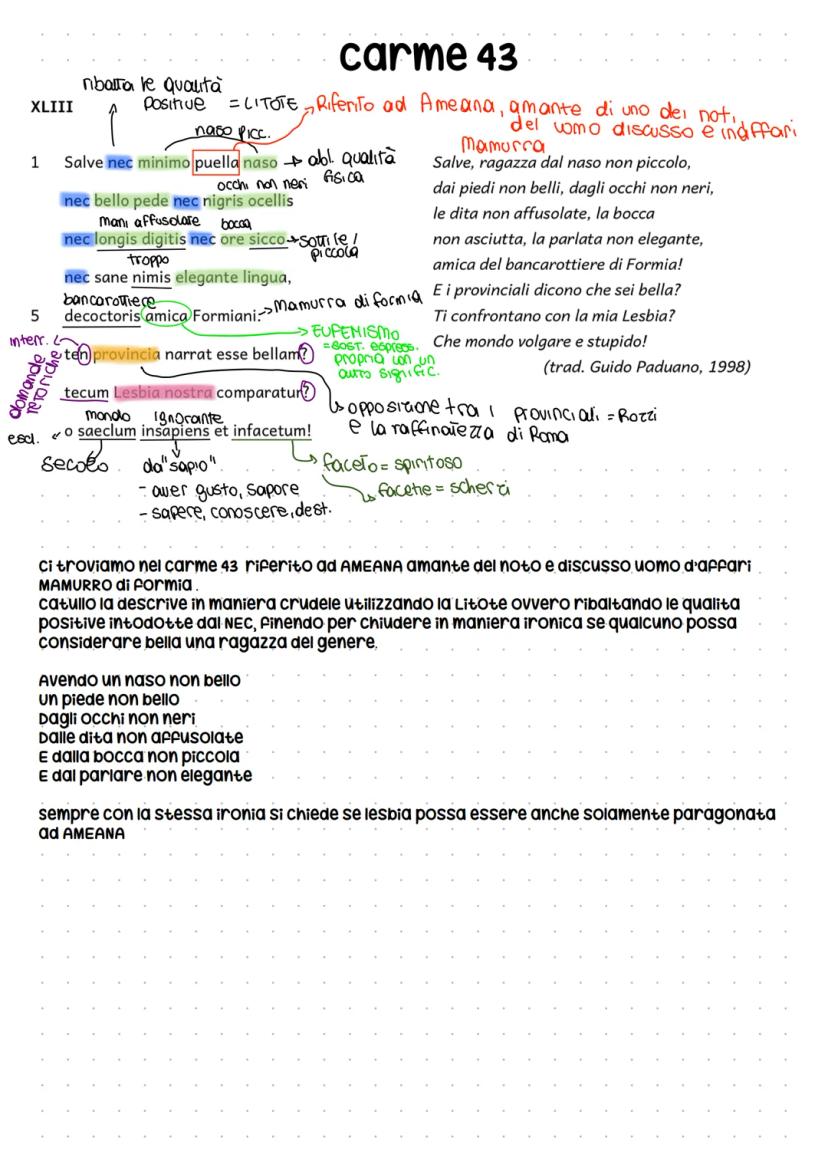 carme 43
ribalta le qualità
positive = LITOTE
Riferito ad Ameana, amante di uno dei not.
del uomo discusso e indaffari
Mamurra
XLIII
naso picc.
1 Salve nec minimo puella naso → abl. qualità
fisica
occhi non neri
nec bello pede nec nigris ocellis
mani affusolate bocca
nec longis digitis nec ore sicco → sottile /
piccola
troppo
nec sane nimis elegante lingua,
bancarottiere
5 decoctoris amica Formiani. → Mamurra di formia
EUFEMISMO
= sost. espress.
propria con un
altro signific.
interr.
domande
retoriche
ten provincia narrat esse bellam?
tecum Lesbia nostra comparatur?
opposizione tra i provinciali = Rozzi
e la raffinatezza di Roma
mondo ignorante
escl. o saeclum insapiens et infacetum!
secolo
da "sapio"
- aver gusto, sapore
- sapere, conoscere, dest.
faceto = spiritoso
facetie = scherzi
Salve, ragazza dal naso non piccolo,
dai piedi non belli, dagli occhi non neri,
le dita non affusolate, la bocca
non asciutta, la parlata non elegante,
amica del bancarottiere di Formia!
E i provinciali dicono che sei bella?
Ti confrontano con la mia Lesbia?
Che mondo volgare e stupido!
(trad. Guido Paduano, 1998)
Ci troviamo nel carme 43 riferito ad AMEANA amante del noto e discusso uomo d'affari
MAMURRO di formia .
catullo la descrive in maniera crudele utilizzando la Litote ovvero ribaltando le qualita
positive intodotte dal NEC, finendo per chiudere in maniera ironica se qualcuno possa
considerare bella una ragazza del genere.
Avendo un naso non bello
Un piede non bello
Dagli occhi non neri
Dalle dita non affusolate
E dalla bocca non piccola
E dal parlare non elegante
sempre con la stessa ironia si chiede se lesbia possa essere anche solamente paragonata
ad AMEANA